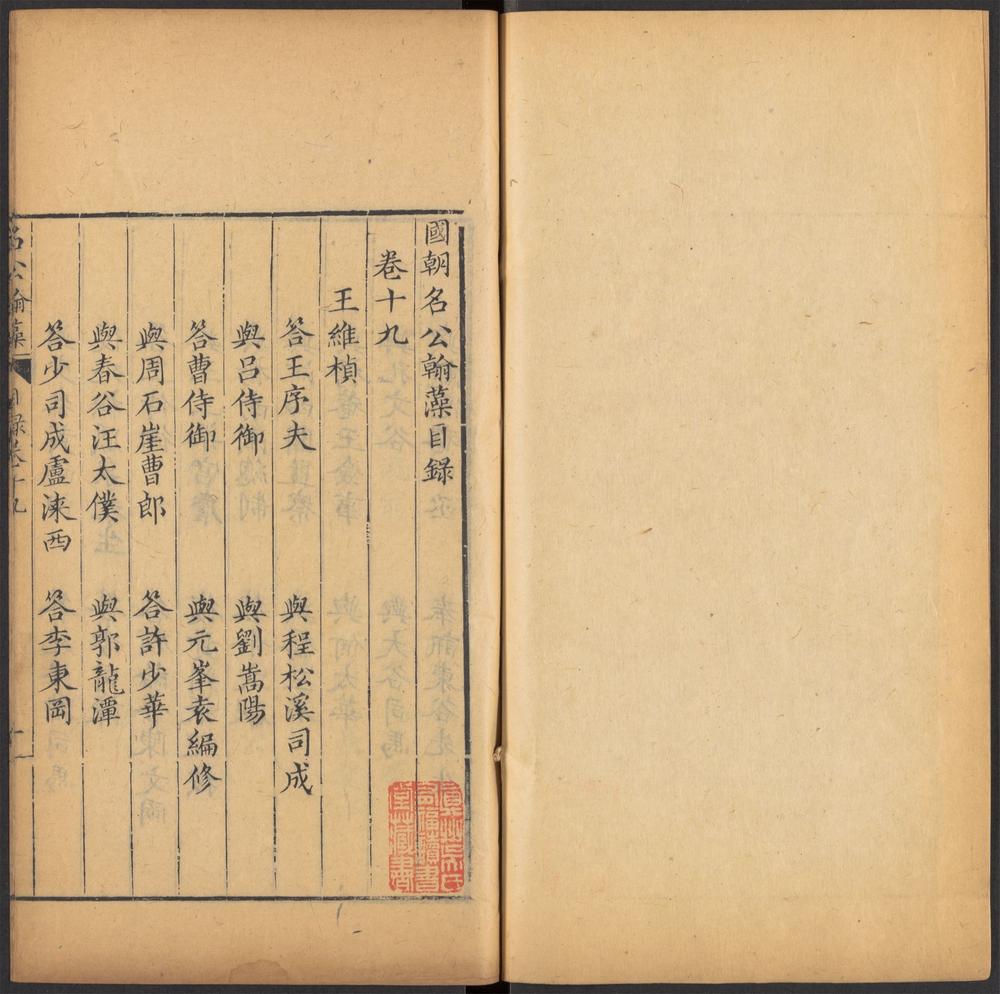 國朝名公翰藻目録
卷十九
王維楨
答王序夫 與程松溪司成
與吕侍御 與劉嵩陽
答曹侍御 與元峯袁編修
與周石崖曹郎 答許少華
與春谷汪太僕 與郭龍潭
答少司成盧涞西 答李東岡
名公翰藻 目録卷十九
真州吳氏
有福讀書
堂藏書